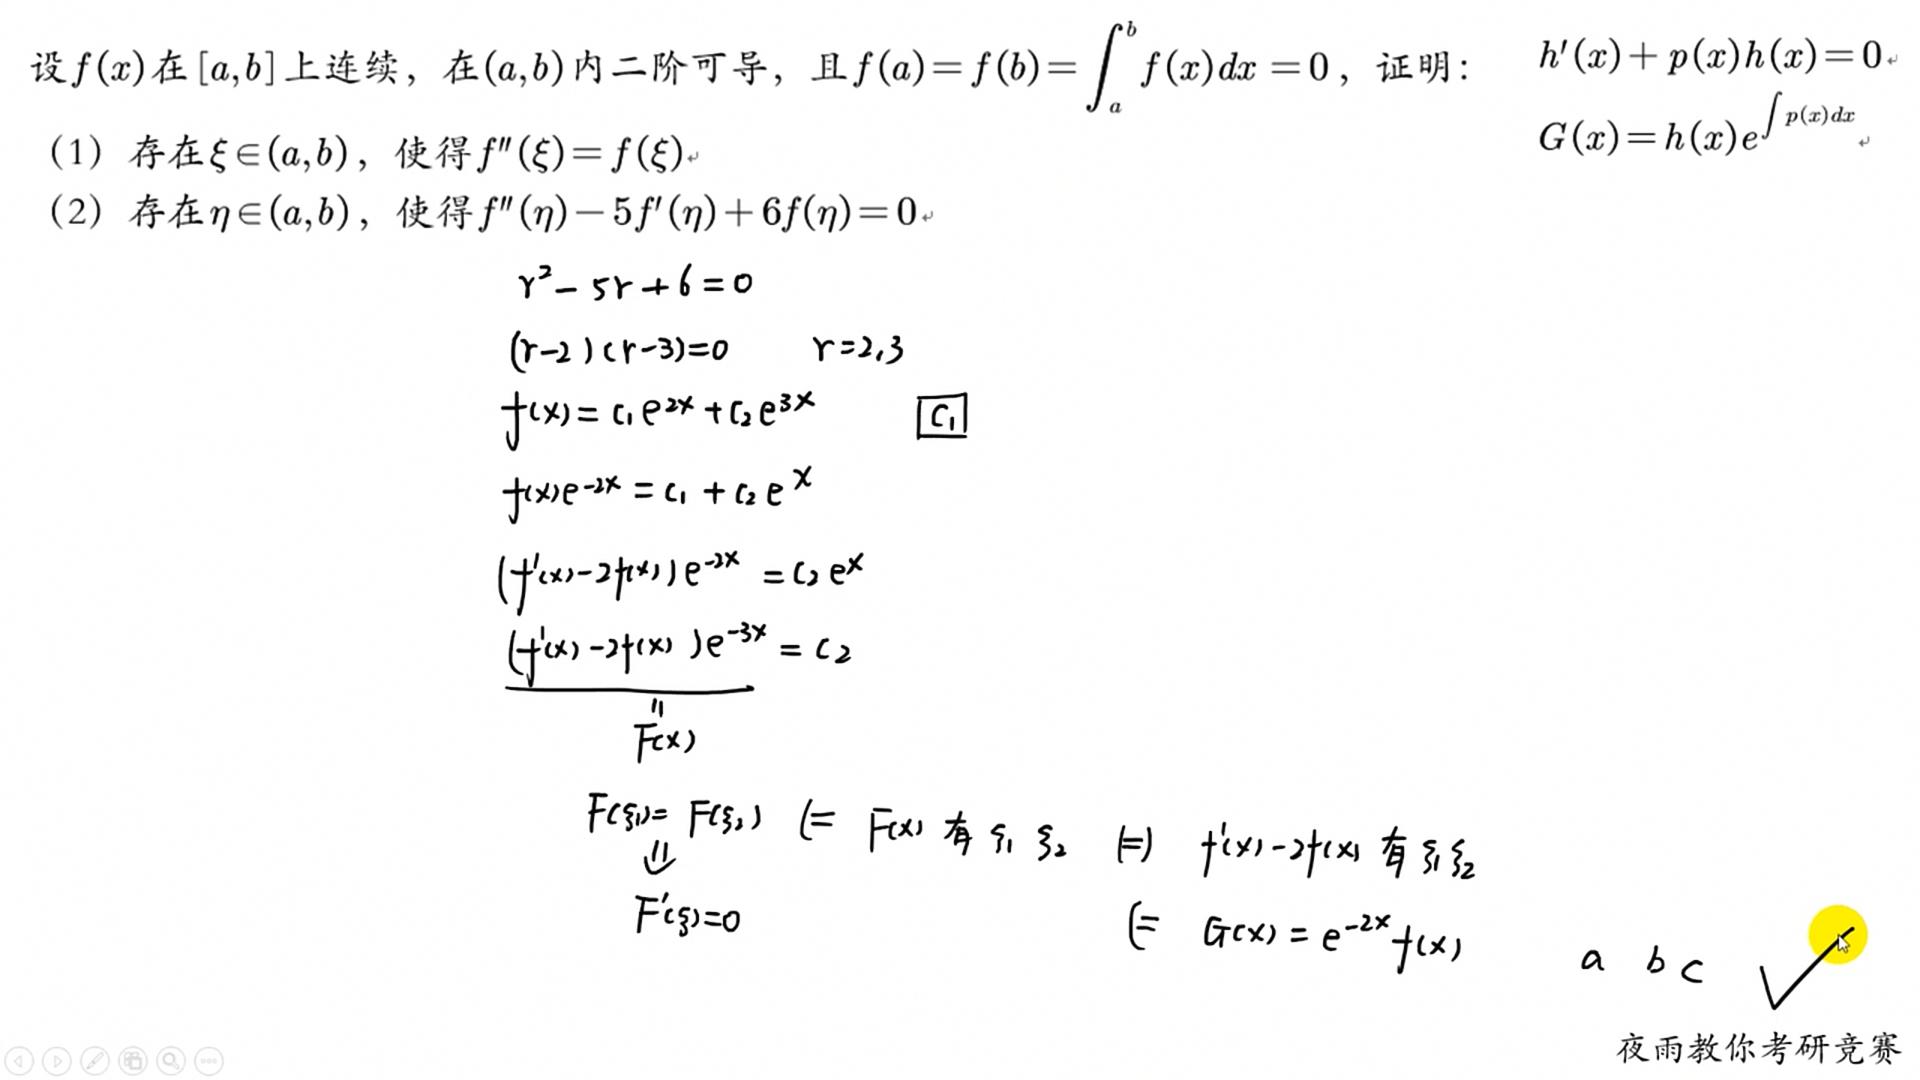 设f(x)在[a,b]上连续，在(a,b)内二阶可导，且f(a)=f(b)=∫_a^b f(x)dx=0，证明：
（1）存在ξ∈(a,b)，使得f″(ξ)=f(ξ)
（2）存在η∈(a,b)，使得f″(η)−5f′(η)+6f(η)=0
h′(x)+p(x)h(x)=0
G(x)=h(x)e^{∫p(x)dx}
r²−5r+6=0
(r−2)(r−3)=0 r=2,3
f(x)=c₁e^{2x}+c₂e^{3x} C₁
f(x)e^{−2x}=c₁+c₂e^x
(f′(x)−2f(x))e^{−2x}=c₂e^x
(f′(x)−2f(x))e^{−3x}=c₂
=
F(x)
F(ξ₁)=F(ξ₂) ⇐ F(x)有ξ₁ ξ₂ ⇔ f′(x)−2f(x)有ξ₁ξ₂
⇓
F′(ξ)=0 ⇐ G(x)=e^{−2x}f(x) a b c ✓
夜雨教你考研竞赛